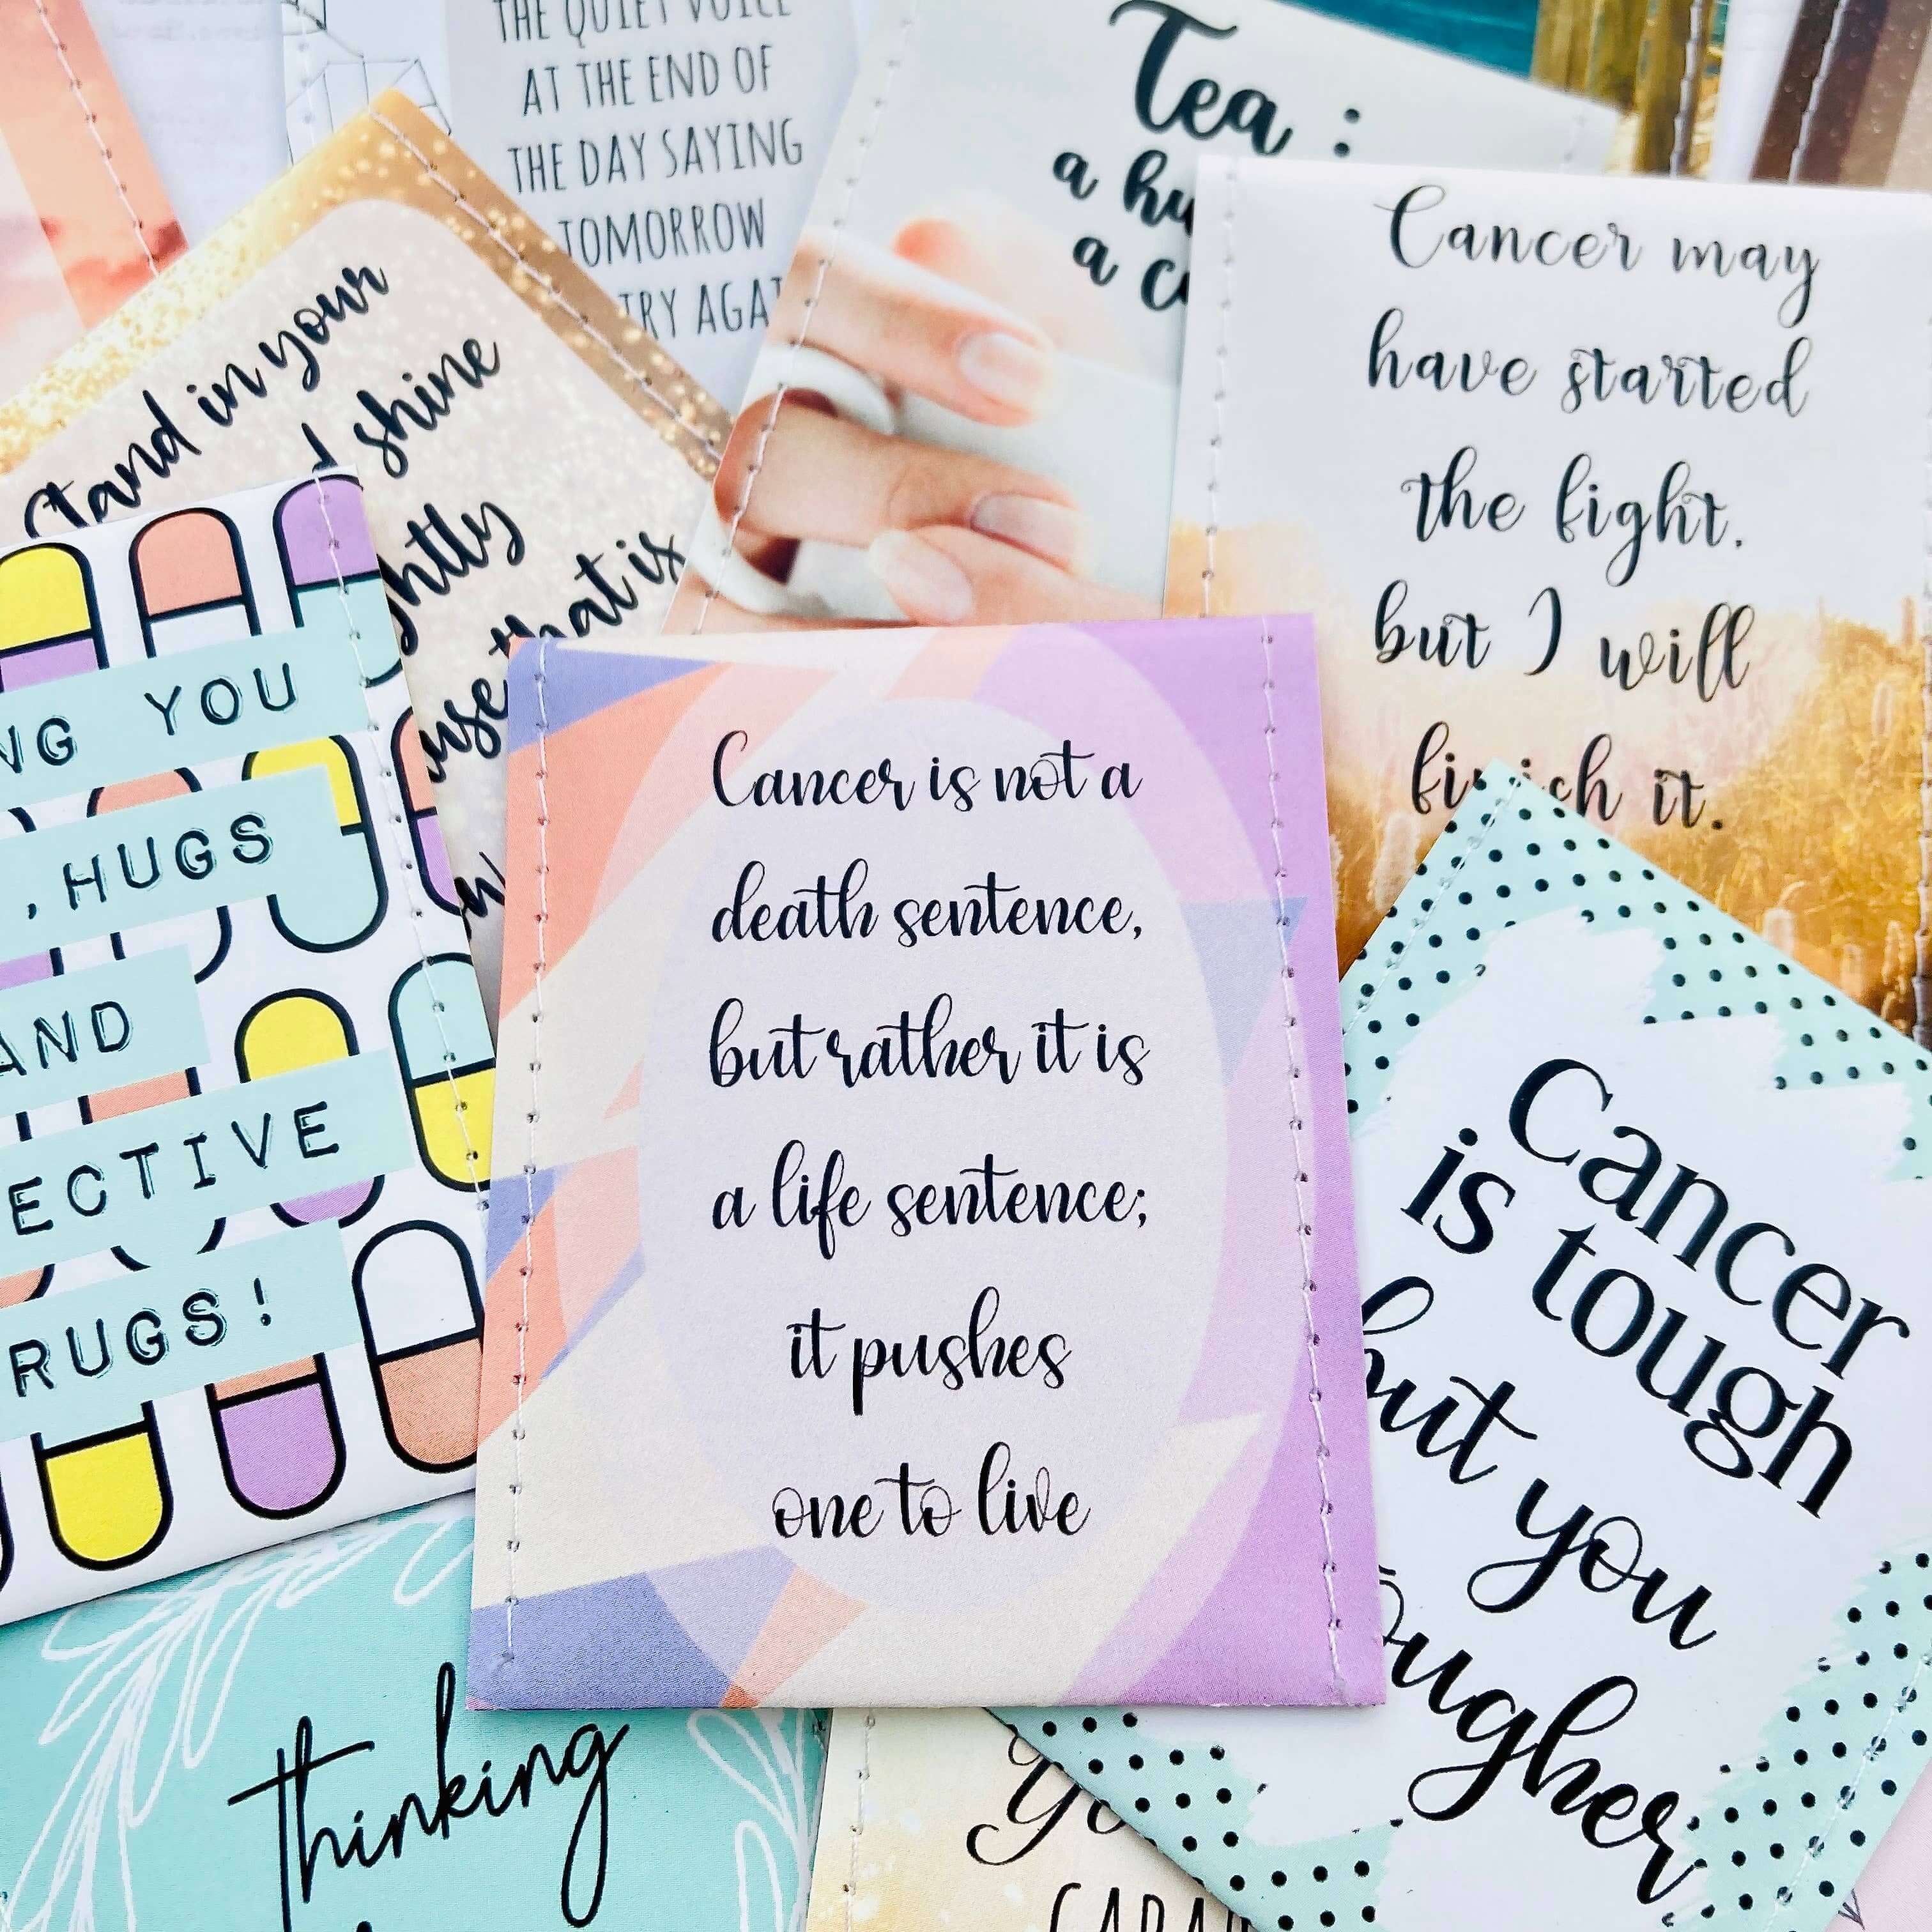 THE QUIET VOICE
AT THE END OF
THE DAY SAYING
TOMORROW
TRY AGA
Tea :
a hu
a c
Cancer may
have started
the fight.
but I will
finish it.
Stand in your
shine
ghtly
use that is
NG YOU
, HUGS
AND
ECTIVE
RUGS!
Cancer is not a
death sentence,
but rather it is
a life sentence;
it pushes
one to live
Cancer
is tough
but you
ougher
thinking
Yo